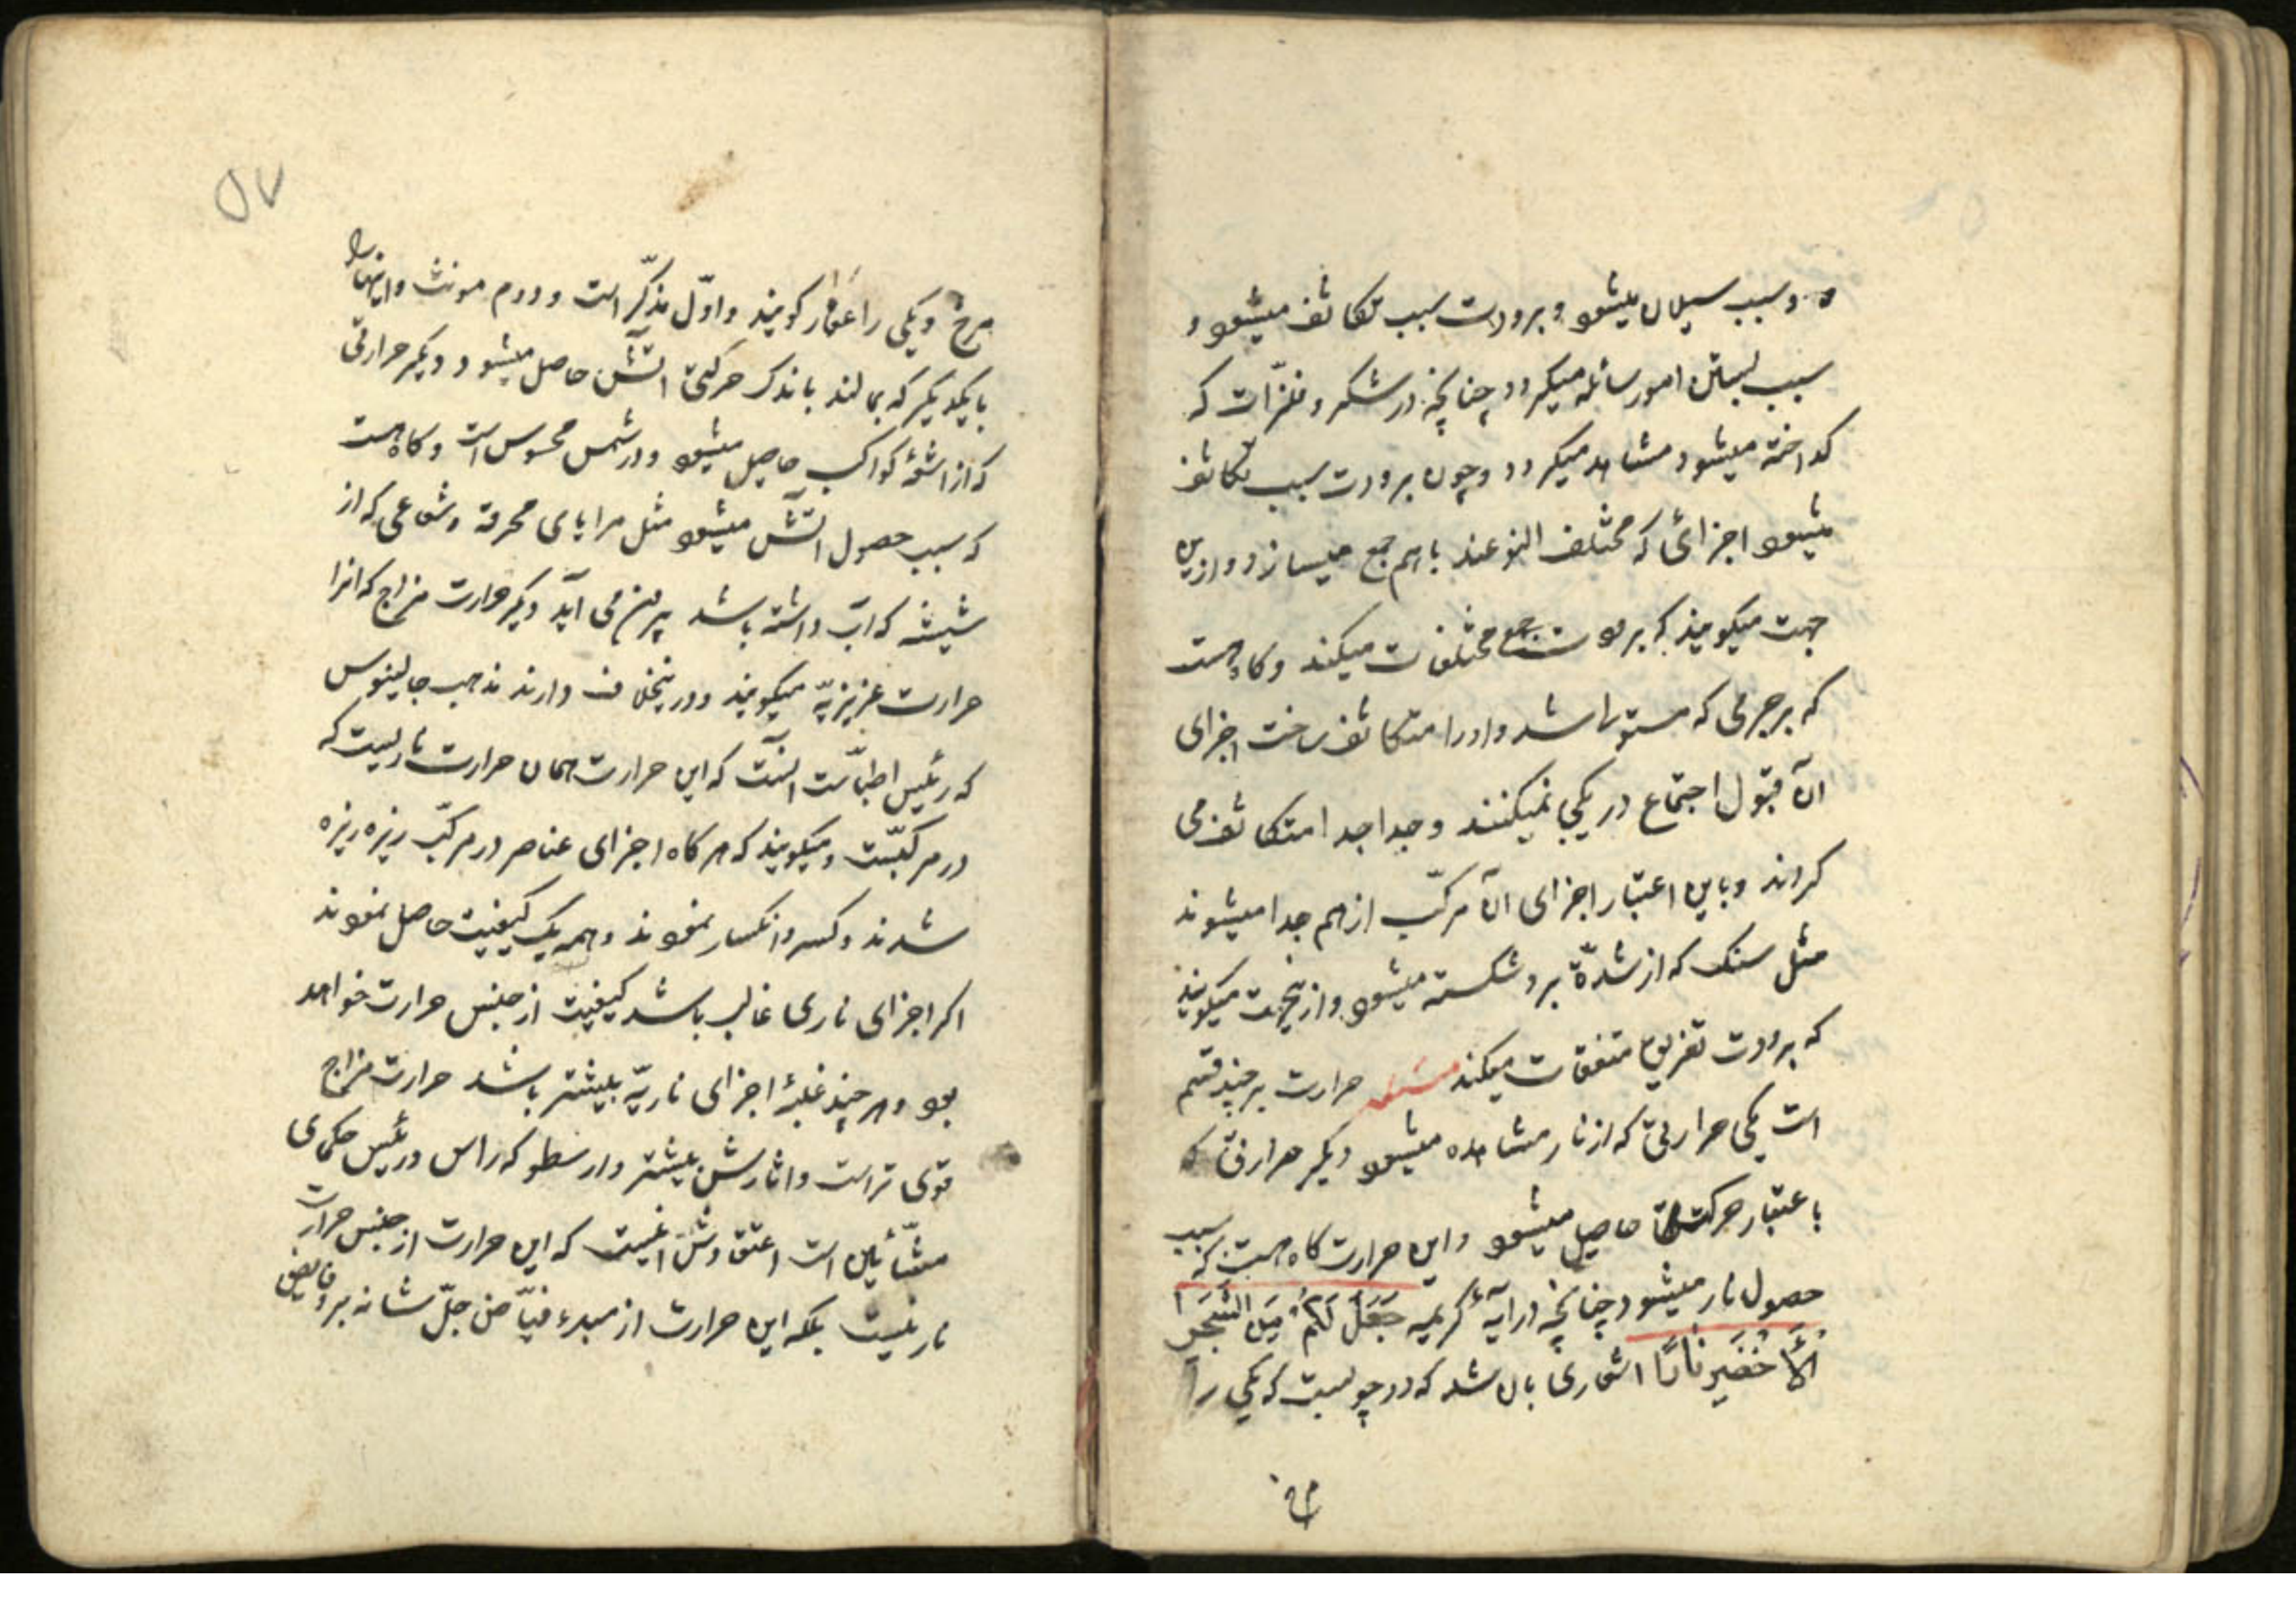 و سبب سیلان میشود و برودت سبب تکاثف میشود و
سبب بستن امور سائله میکردد چنانچه در شکر و فلزّات که
کداخته میشود مشاهد میکردد و چون برودت سبب تکاثف
میشود اجزائی که مختلف النوعند باهم جمع میسازد و ازین
جهت میکویند که برودت جمع مختلفات میکند و کاهست
که بر جرمی که مستولی شد و او را متکاثف ساخت اجزای
آن قبول اجتماع در یکجا نمیکنند و جدا جدا متکاثف می
کردند و باین اعتبار اجزای آن مرکّب از هم جدا میشوند
مثل سنک که از شدّة برد شکسته میشود و ازینجهت میکویند
که برودت تفریق متفقات میکند مسئله حرارت بر چند قسم
است یکی حرارتی که از نار مشاهده میشود دیکر حرارتی که
باعتبار حرکت حاصل میشود و این حرارت کاه هست که سبب
حصول نار میشود چنانچه در آیهٔ کریمه جَعَلَ لَکُمْ مِنَ الشَّجَرِ
الْأَخْضَرِ نَارًا اشعاری بان شد که دو چوبست که یکی را
مرخ
مرخ و یکی را عفار کویند و اوّل مذکّر است و دوم مونث و اینها را
بایکدیکر که بمالند باندک حرکتی آتش حاصل میشود و دیکر حرارتی
که از اشعهٔ کواکب حاصل میشود و در شمس محسوس است و کاهست
که سبب حصول آتش میشود مثل مرایای محرقه و شعاعی که از
شیشه که آب داشته باشد بیرون می آید و دیکر حرارت مزاج که انرا
حرارت غریزیّه میکویند و درینخلاف دارند مذهب جالینوس
که رئیس اطبّاست آنست که این حرارت همان حرارت ناریست که
در مرکبّست و میکویند که هر کاه اجزای عناصر در مرکّب ریزه ریزه
شدند و کسر و انکسار نمودند و همه یک کیفیت حاصل نمودند
اکر اجزای ناری غالب باشد کیفیت از جنس حرارت خواهد
بود و هر چند غلبهٔ اجزای ناریّه بیشتر باشد حرارت مزاج
قوی تر است و اثارش بیشتر و ارسطو که راس و رئیس حکمای
مشّائین است اعتقادش انست که این حرارت از جنس حرارت
نار نیست بلکه این حرارت از مبدء فیّاض جلّ شانه برو فایض